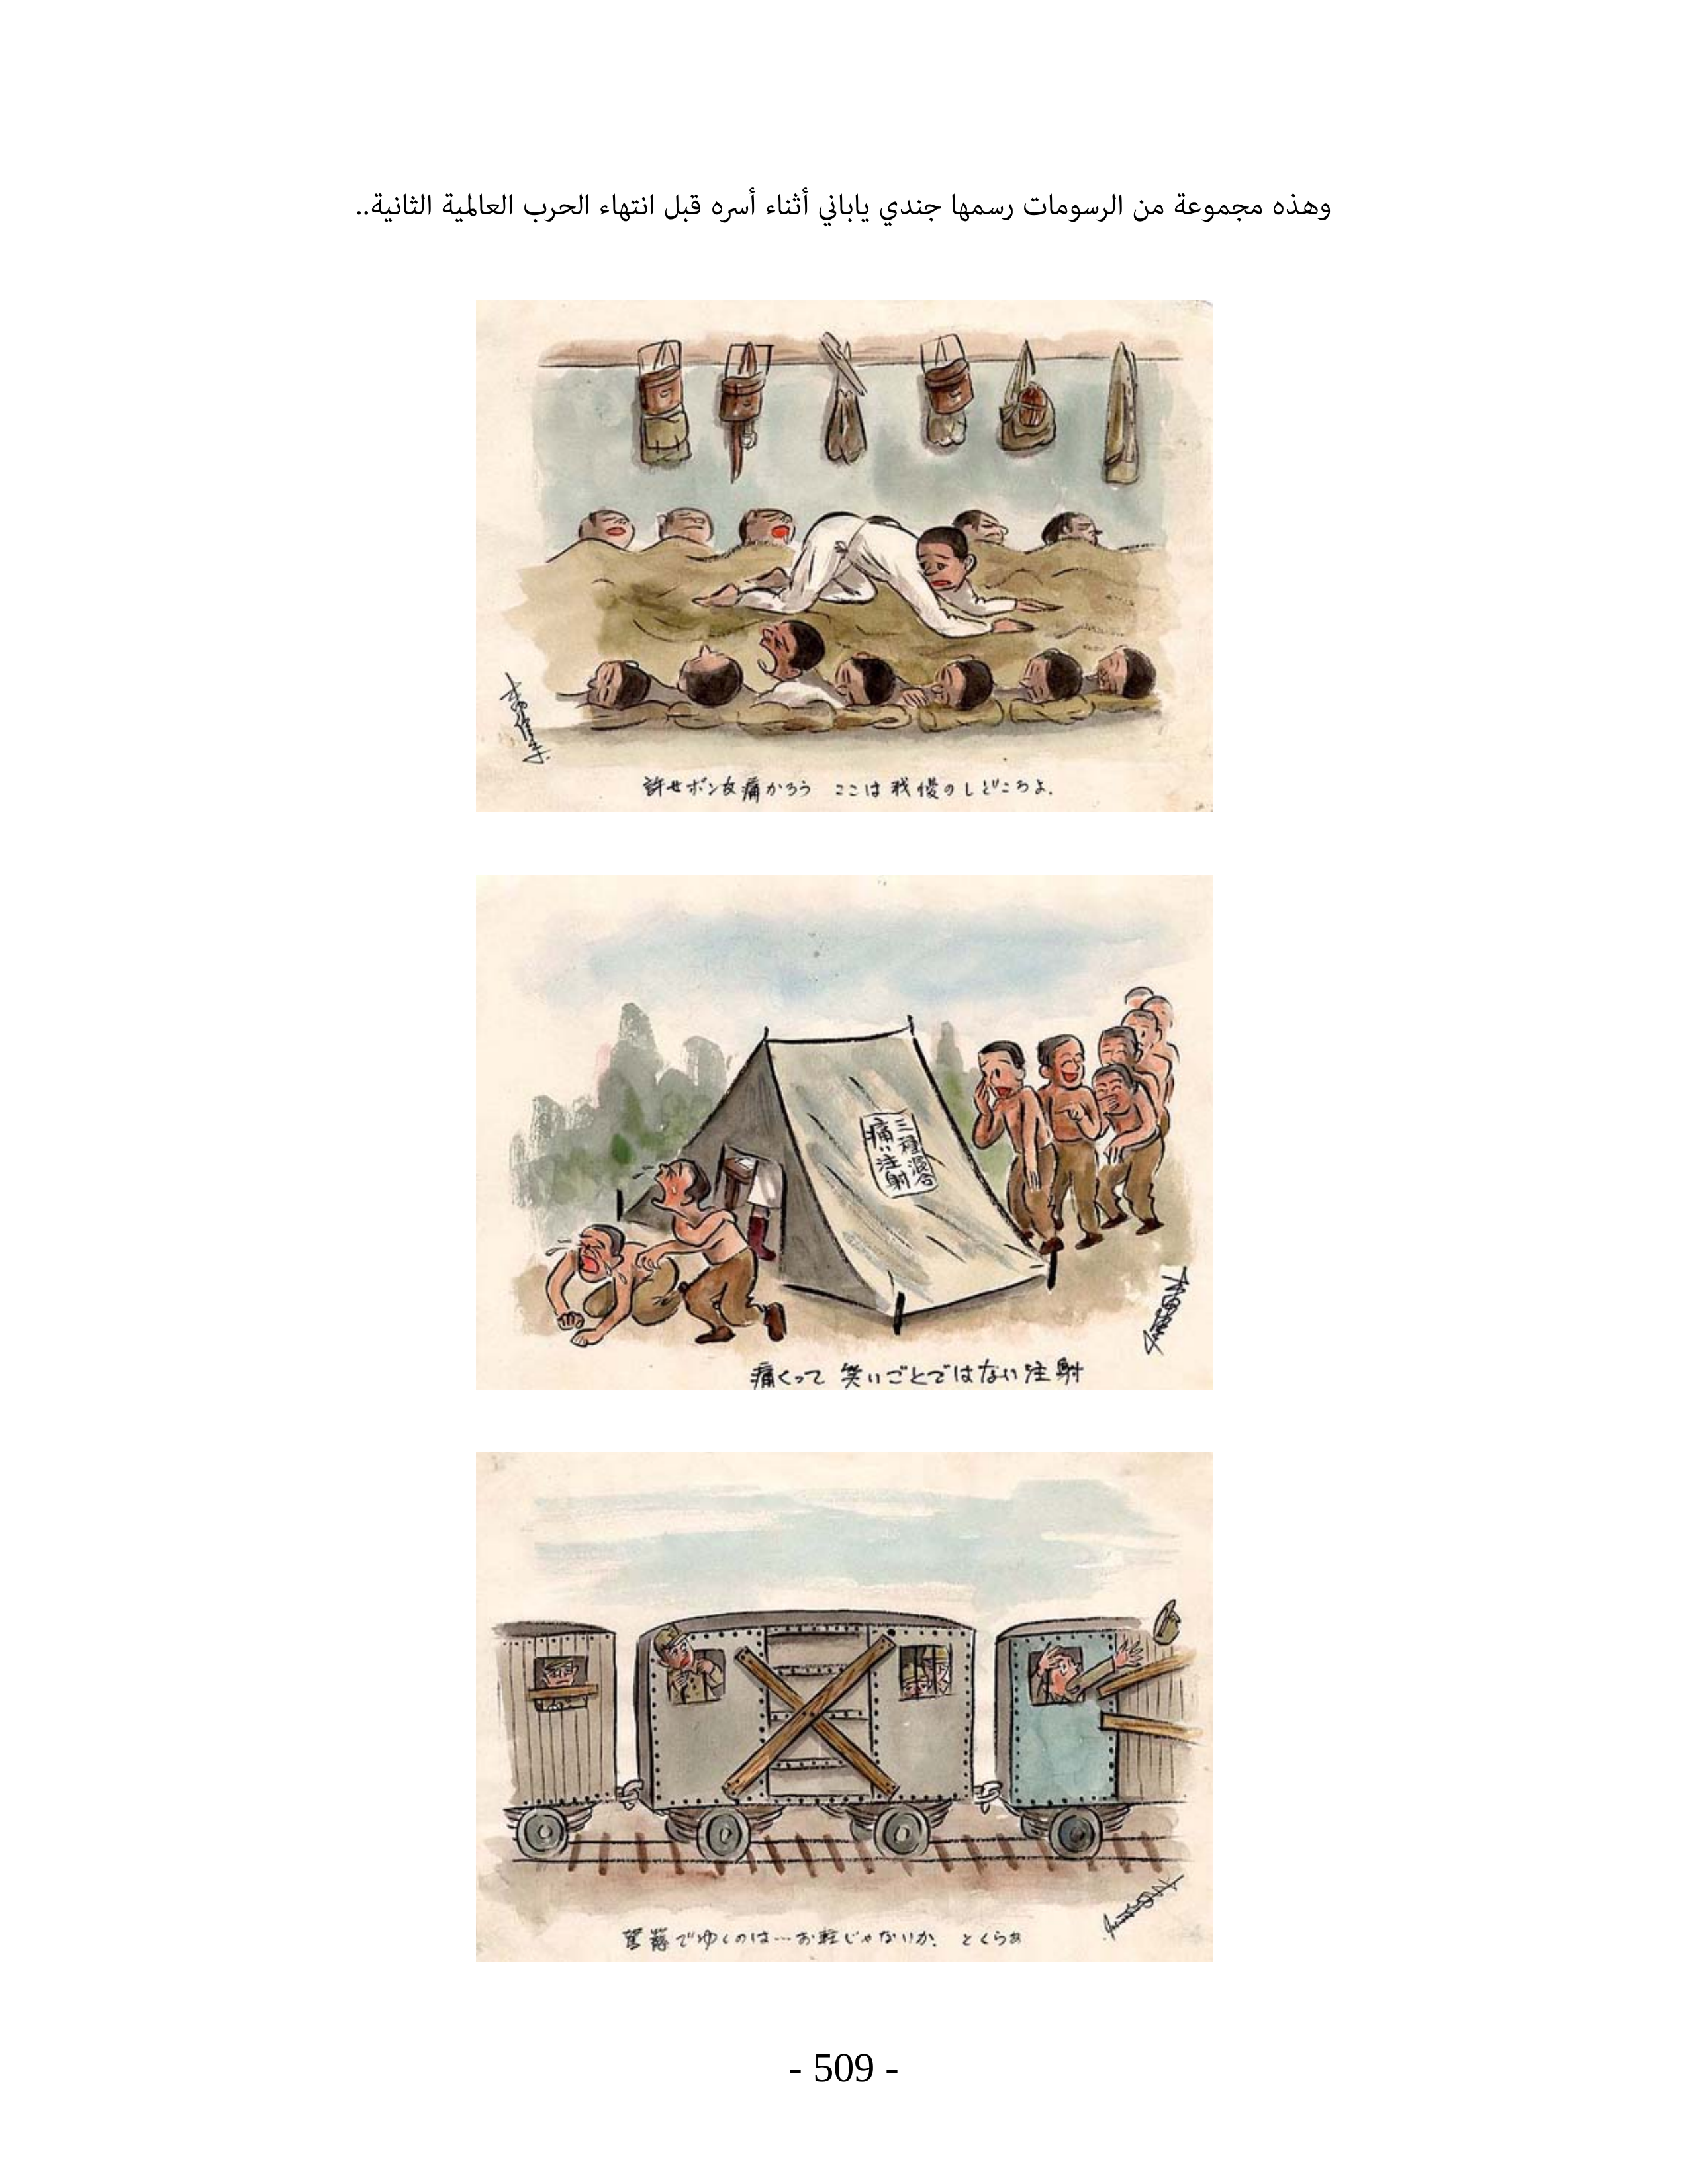 وهذه مجموعة من الرسومات رسمها جندي ياباني أثناء أسره قبل انتهاء الحرب العالمية الثانية..
許せボン友痛かろう ここは我慢のしどころよ.
三種混合
痛い注射
痛くって 笑いごとではない注射
駕籠でゆくのは…お軽じゃないか、 とくらぁ
- 509 -